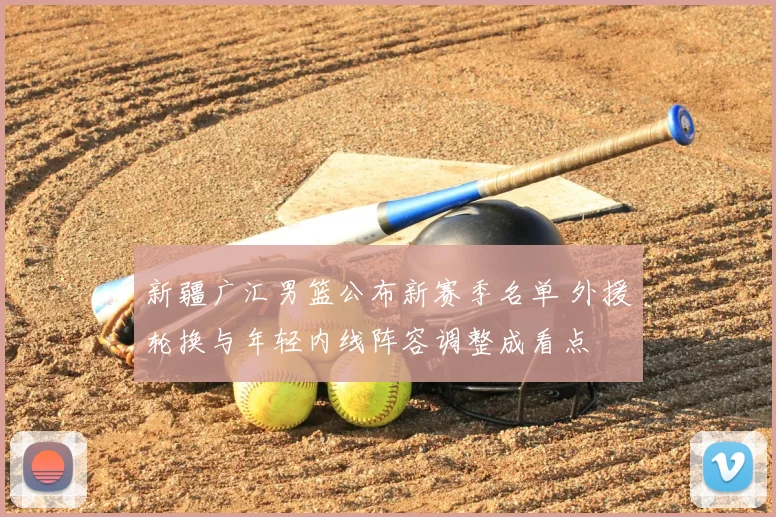 新疆广汇男篮公布新赛季名单 外援
轮换与年轻内线阵容调整成看点